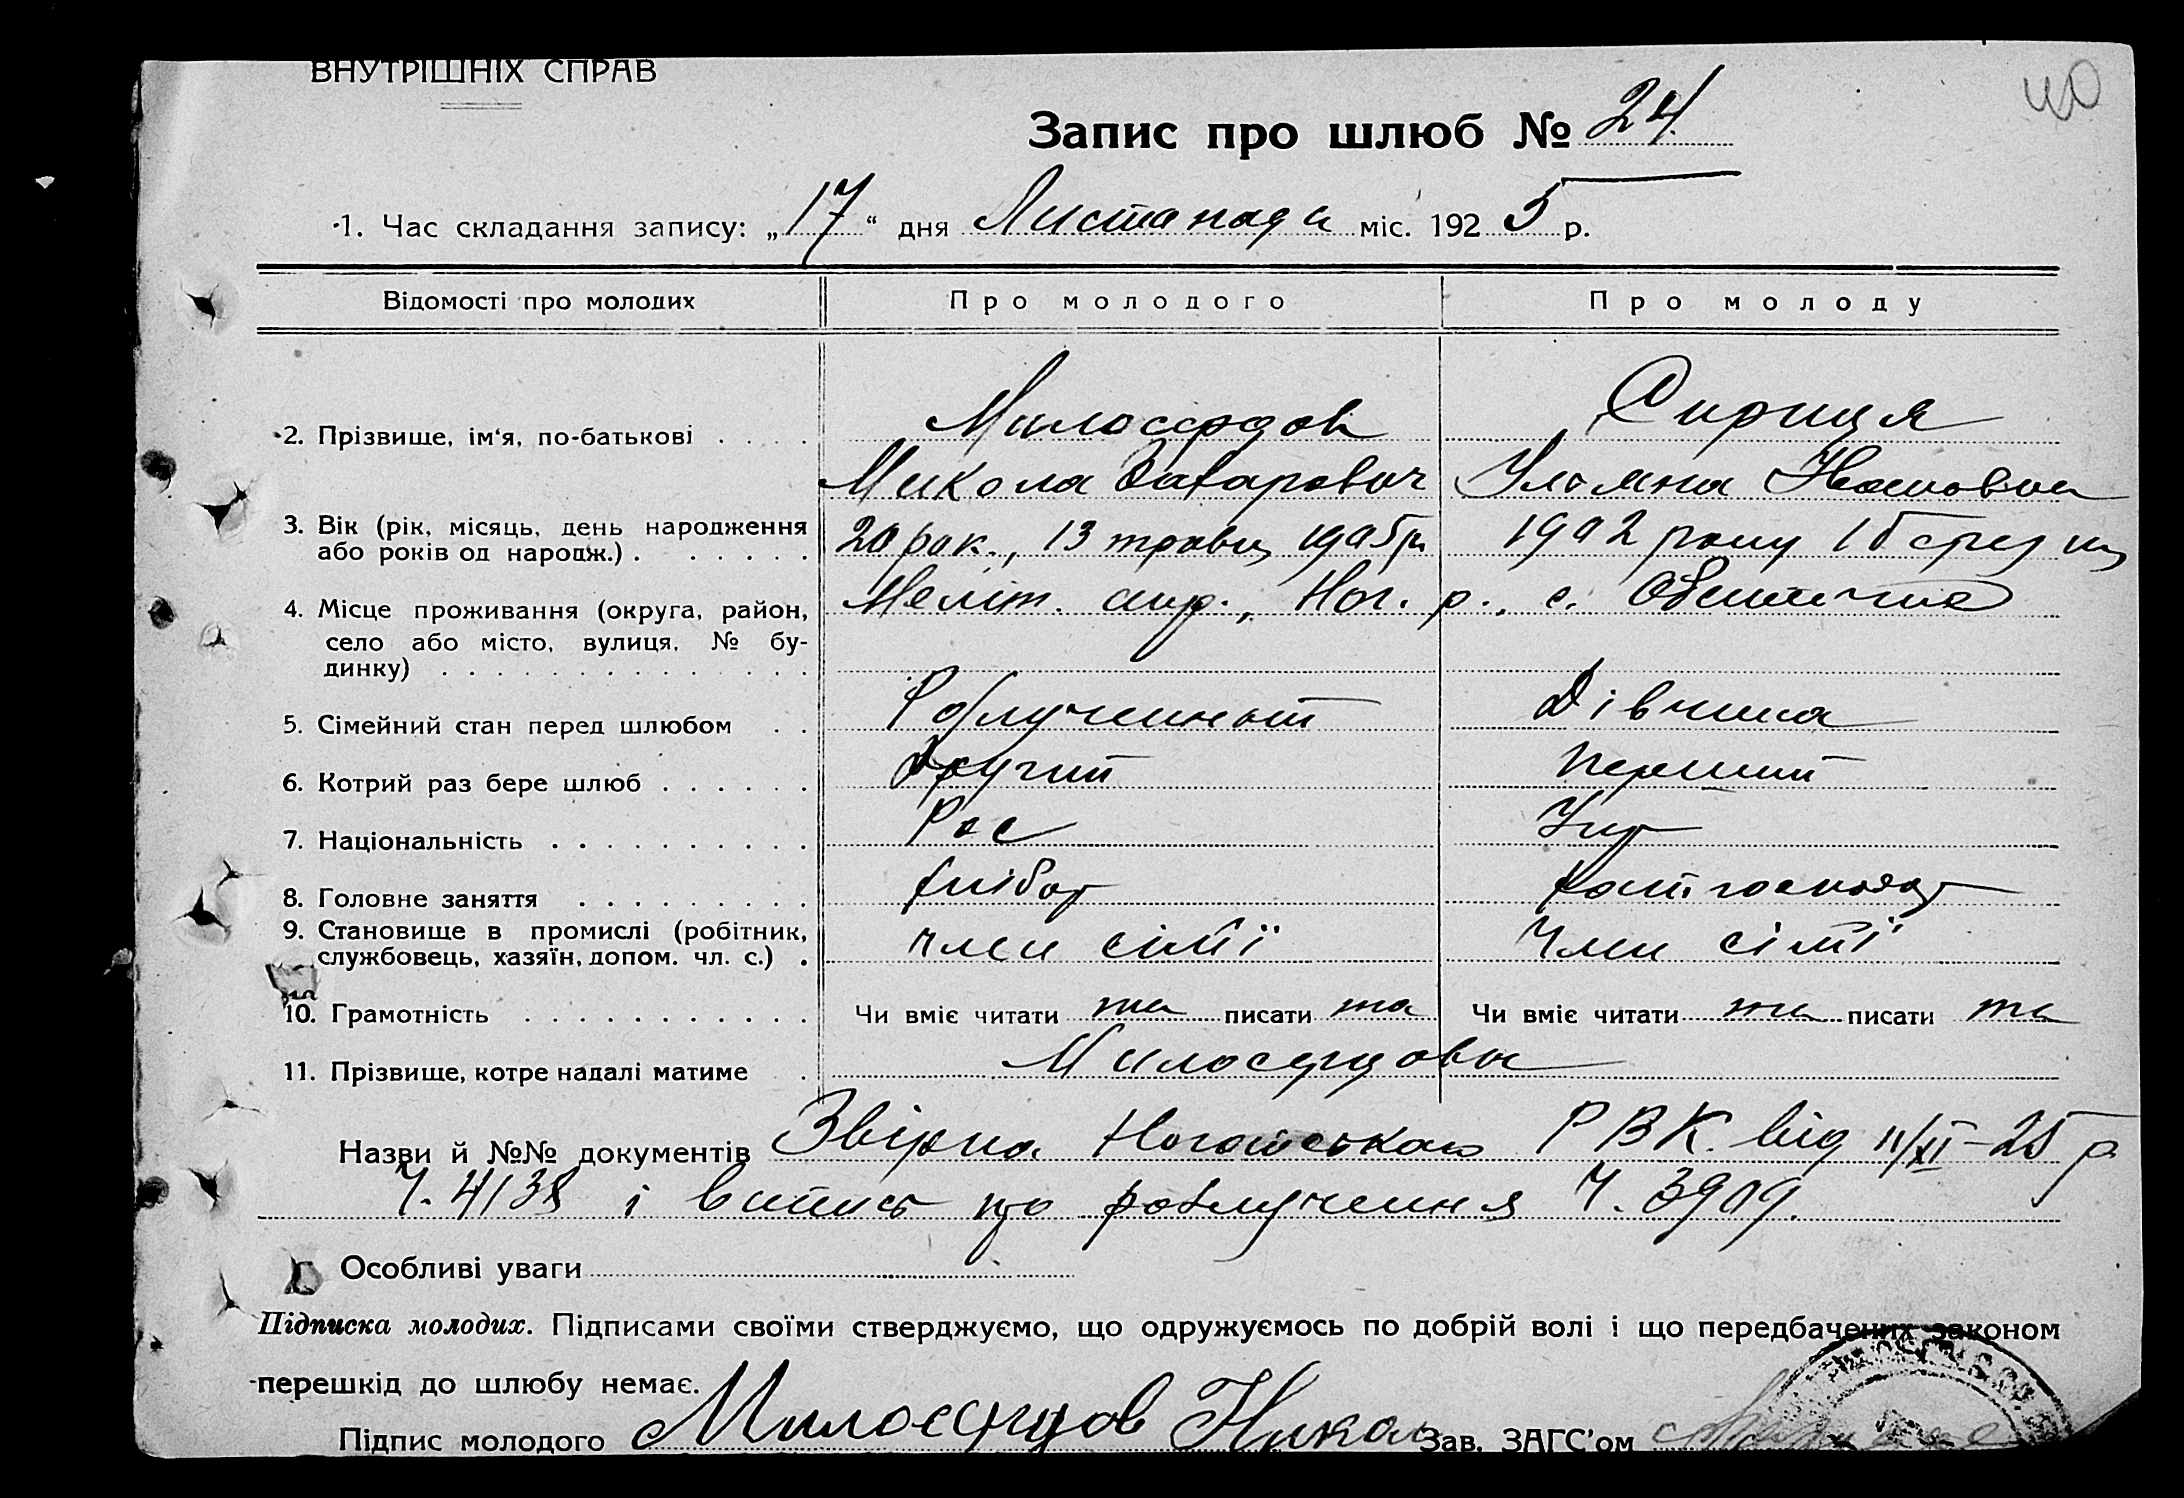 ВНУТРІШНІХ СПРАВ
40
Запис про шлюб № 24
1. Час складання запису: „17“ дня Листапада міс. 1925 р.
Відомості про молодих Про молодого Про молоду
2. Прізвище, ім'я, по-батькові Милосердов Сириця
Микола Захарович Уляяна
3. Вік (рік, місяць, день народження 20 рок., 13 травц 1905 р. 1902 року 15
або років од народж.)
4. Місце проживання (округа, район, Меліт. окр., Ног. р., с.
село або місто, вулиця, № бу-
динку)
5. Сімейний стан перед шлюбом Розлученный Дівчина
6. Котрий раз бере шлюб Другий Перший
7. Національність Рос Укр
8. Головне заняття хлібор хатгосподар
9. Становище в промислі (робітник, член сімї Член сімї
службовець, хазяїн, допом. чл. с.)
10. Грамотність Чи вміє читати та писати та Чи вміє читати та писати та
11. Прізвище, котре надалі матиме Милосердови
Назви й №№ документів Звірка Ногайського РВК. від 11/XI-25 р
Ч. 4138 і випись про розлучення Ч. 3909.
Особливі уваги
Підписка молодих. Підписами своїми стверджуємо, що одружуємось по добрій волі і що передбачених законом
перешкід до шлюбу немає.
Підпис молодого Милосердов Никол Зав. ЗАГС'ом